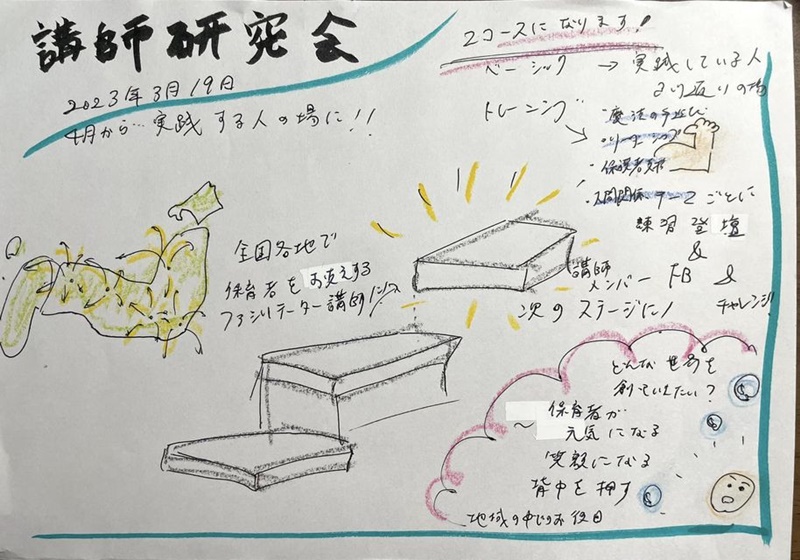 講師研究会
2023年3月19日
4月から…実践する人の場に!!
2コースになります!
ベーシック → 実践している人
ふり返りの場
トレーニング
・魔法の手遊び
・リーダーシップ
・保護者支援
・人間関係 テーマごとに
練習登壇
&
講師
メンバー FB &
チャレンジ!
次のステージに!
全国各地で
保育者をお支えする
ファシリテーター講師に!
どんな世界を
創っていきたい?
〜保育者が
元気になる
笑顔になる
背中を押す
地域の中でのお役目